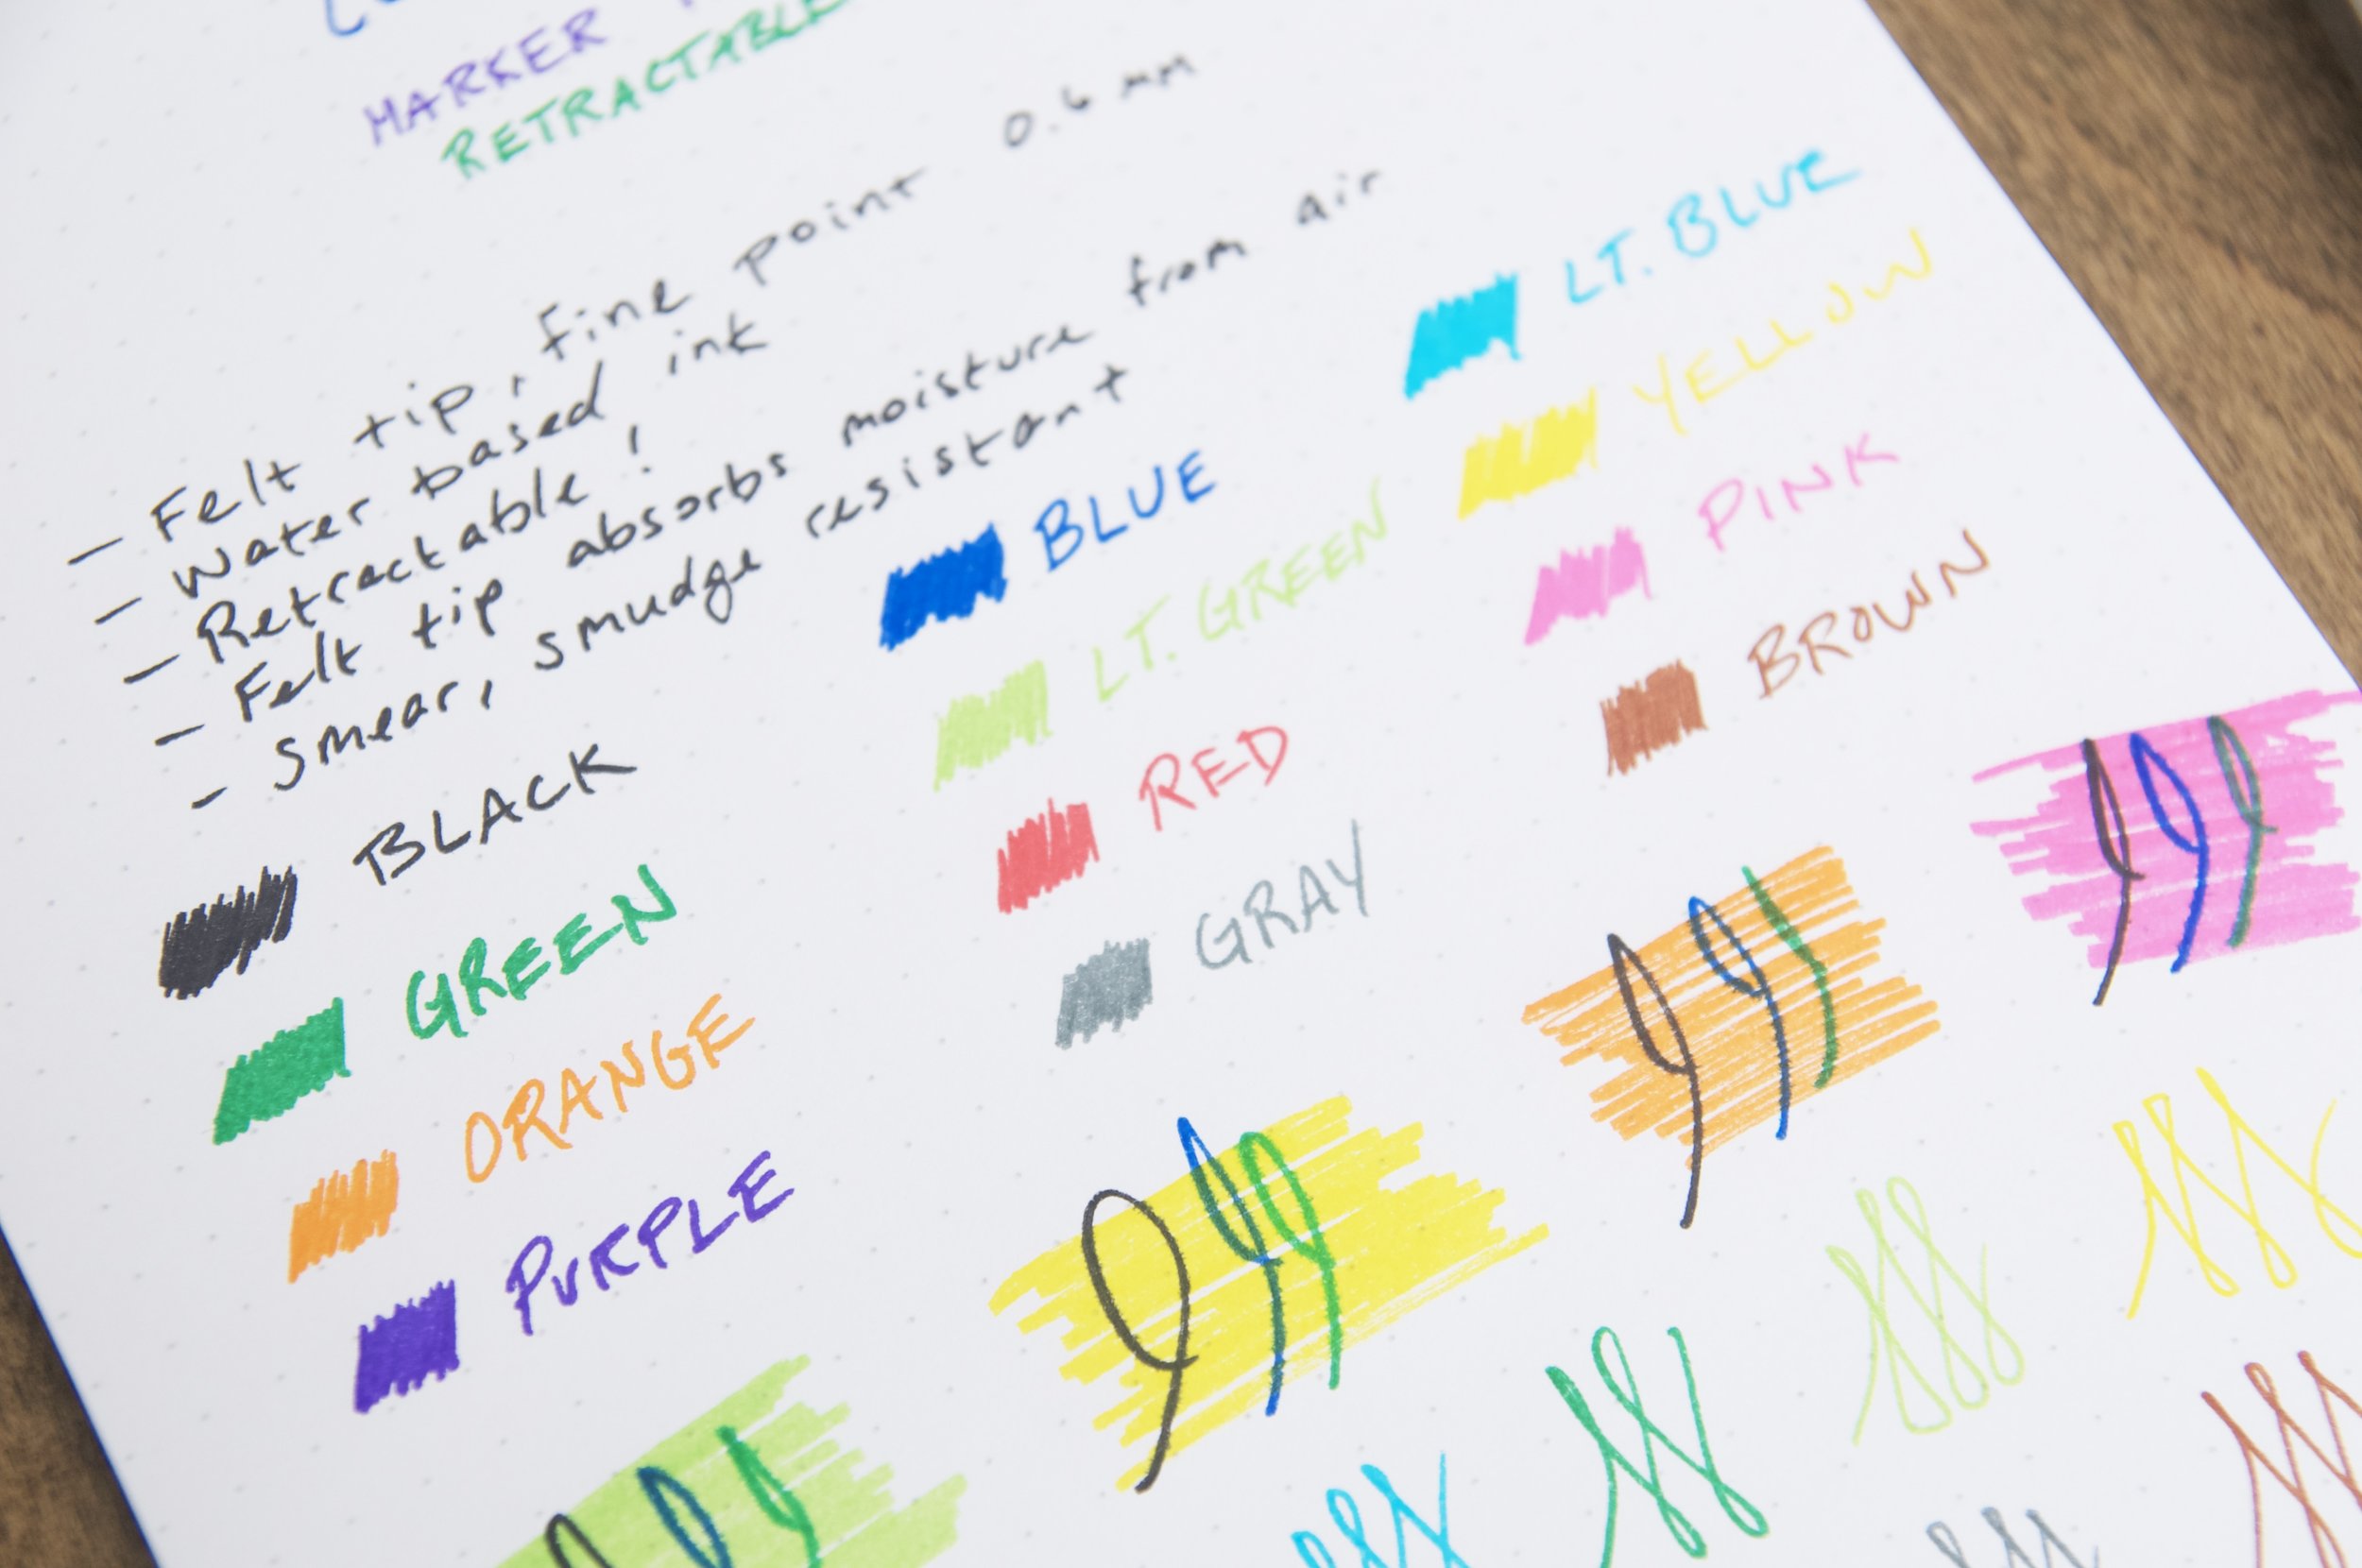 MARKER
RETRACTABLE
- Felt tip, fine point 0.6 mm
- Water based ink
- Retractable!
- Felt tip absorbs moisture from air
- Smear, smudge resistant
BLACK
GREEN
ORANGE
PURPLE
BLUE
LT. GREEN
RED
GRAY
LT. BLUE
YELLOW
PINK
BROWN